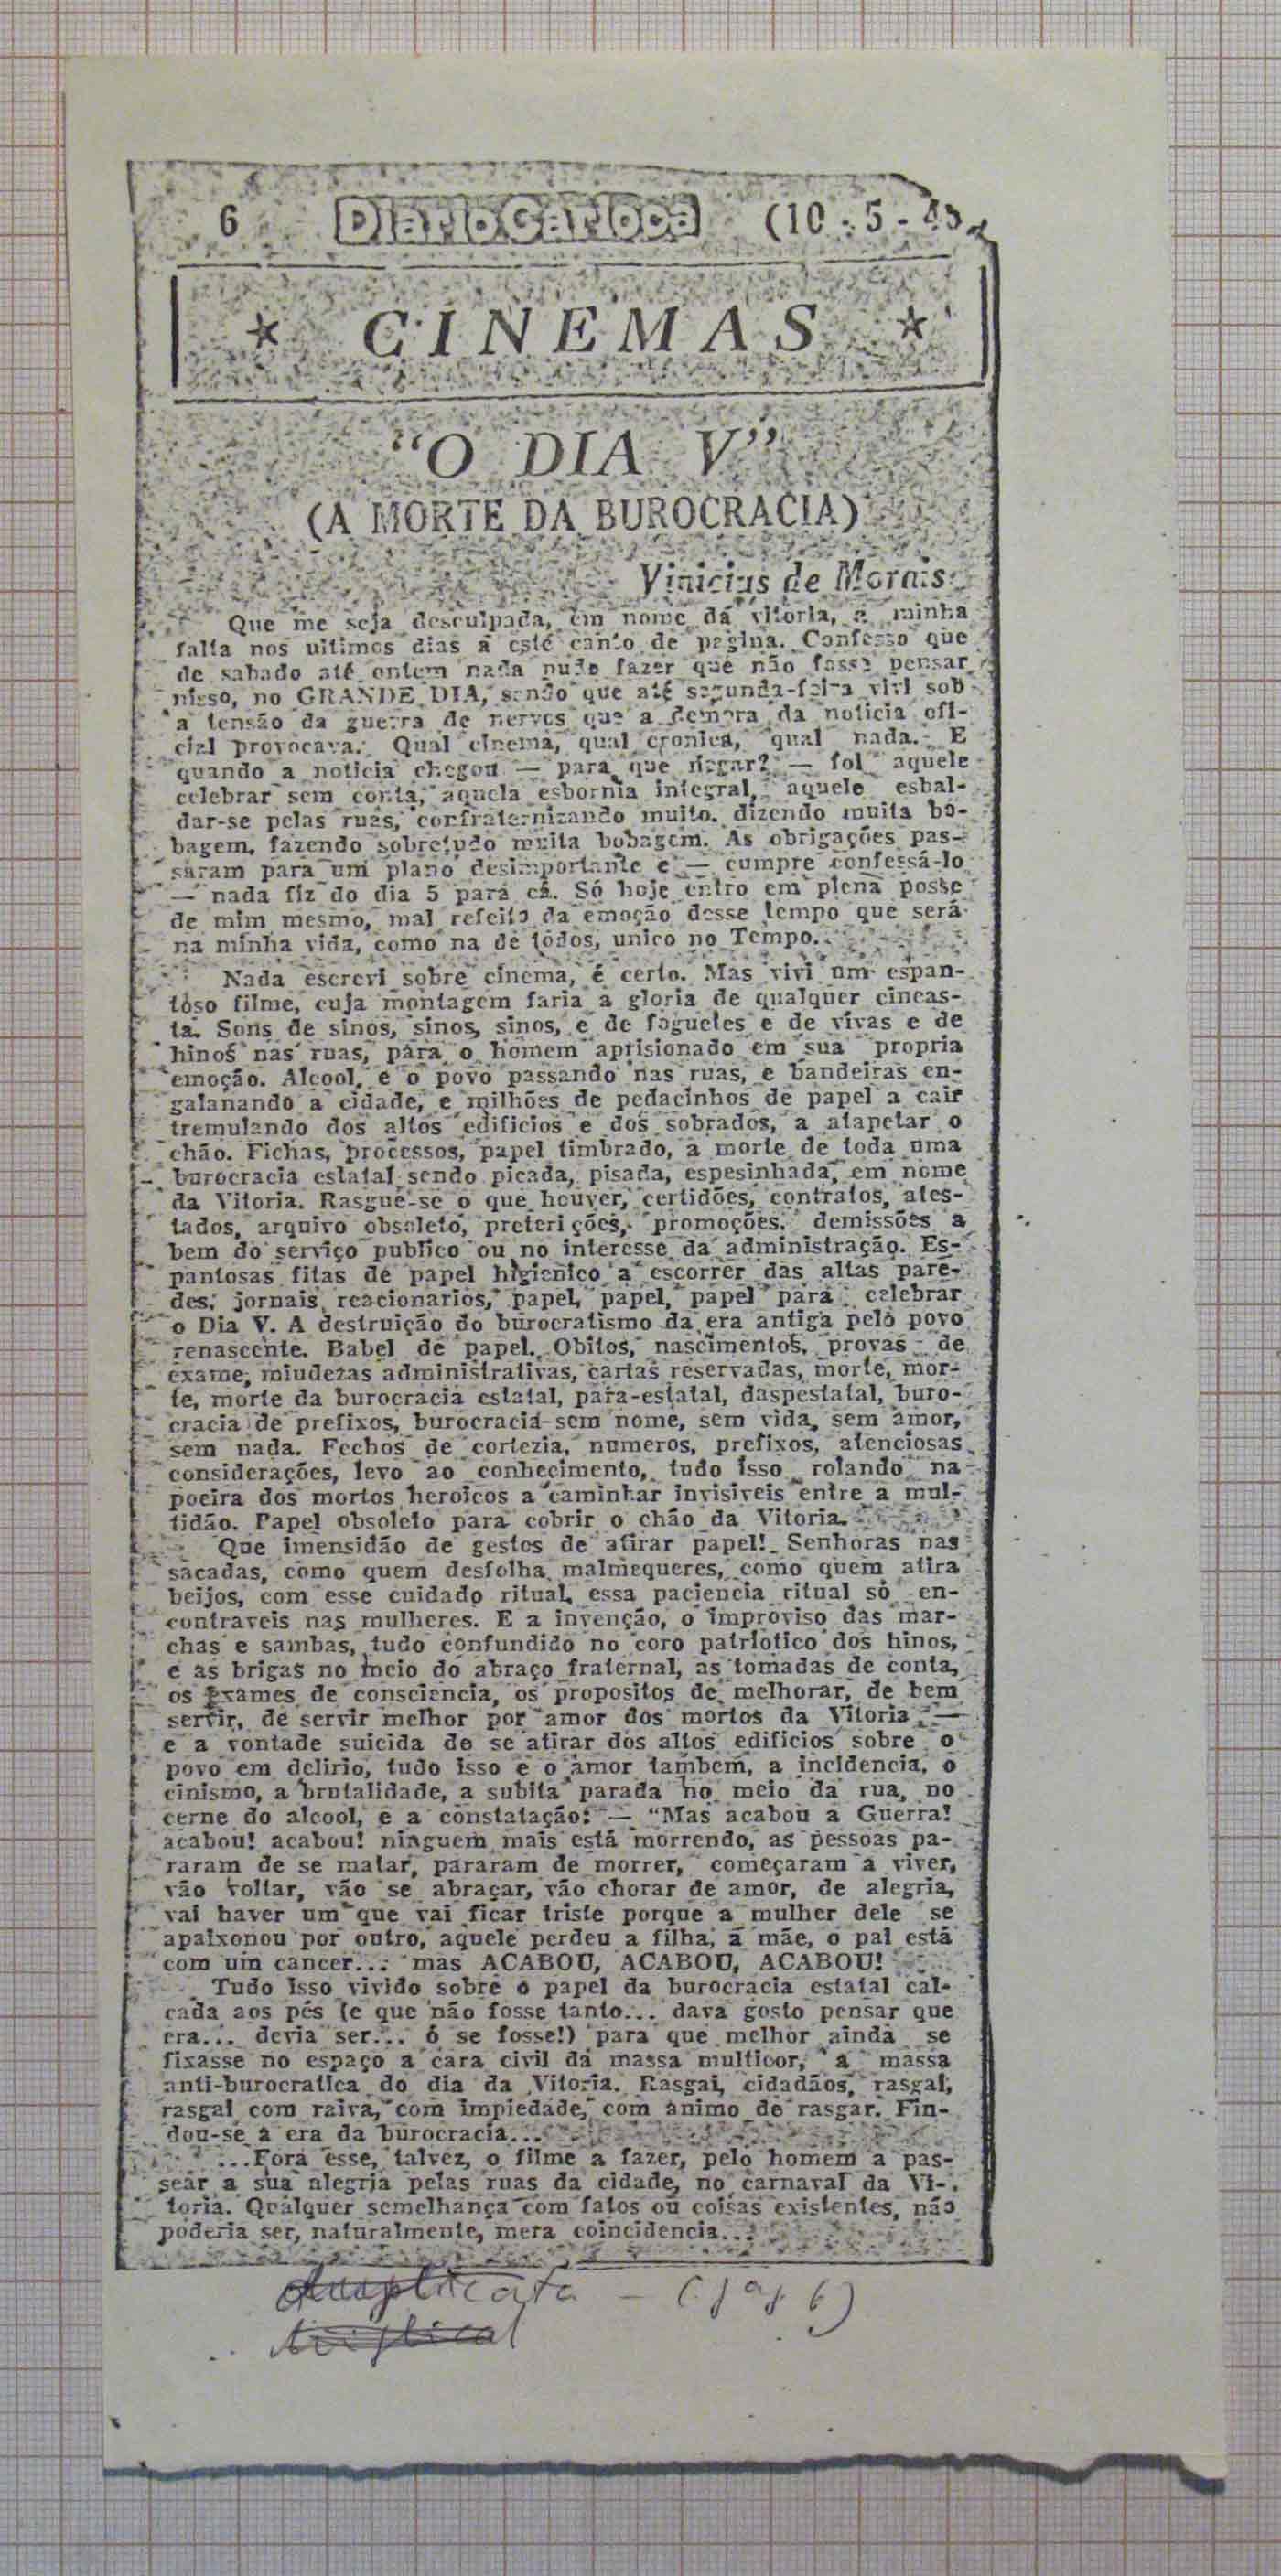 6 Diario Carioca (10-5-45)
* CINEMAS *
"O DIA V"
(A MORTE DA BUROCRACIA)
Vinicius de Morais
Que me seja desculpada, em nome da vitoria, a minha
falta nos ultimos dias a este canto de pagina. Confesso que
de sabado até ontem nada pude fazer que não fosse pensar
nisso, no GRANDE DIA, sendo que até segunda-feira vivi sob
a tensão da guerra de nervos que a demora da noticia ofi-
cial provocava. Qual cinema, qual cronica, qual nada. E
quando a noticia chegou — para que negar? — foi aquele
celebrar sem conta, aquela esbornia integral, aquele esbal-
dar-se pelas ruas, confraternizando muito, dizendo muita bo-
bagem, fazendo sobretudo muita bobagem. As obrigações pas-
saram para um plano desimportante e — cumpre confessá-lo
— nada fiz do dia 5 para cá. Só hoje entro em plena posse
de mim mesmo, mal refeito da emoção desse tempo que será
na minha vida, como na de todos, unico no Tempo.
Nada escrevi sobre cinema, é certo. Mas vivi um espan-
toso filme, cuja montagem faria a gloria de qualquer cineas-
ta. Sons de sinos, sinos, sinos, e de foguetes e de vivas e de
hinos nas ruas, para o homem aprisionado em sua propria
emoção. Alcool, e o povo passando nas ruas, e bandeiras en-
galanando a cidade, e milhões de pedacinhos de papel a cair
tremulando dos altos edificios e dos sobrados, a atapetar o
chão. Fichas, processos, papel timbrado, a morte de toda uma
burocracia estatal sendo picada, pisada, espesinhada, em nome
da Vitoria. Rasgue-se o que houver, certidões, contratos, ates-
tados, arquivo obsoleto, preterições, promoções, demissões a
bem do serviço publico ou no interesse da administração. Es-
pantosas fitas de papel higienico a escorrer das altas pare-
des, jornais reacionarios, papel, papel, papel para celebrar
o Dia V. A destruição do burocratismo da era antiga pelo povo
renascente. Babel de papel. Obitos, nascimentos, provas de
exame, miudezas administrativas, cartas reservadas, morte, mor-
te, morte da burocracia estatal, para-estatal, daspestatal, buro-
cracia de prefixos, burocracia sem nome, sem vida, sem amor,
sem nada. Fechos de cortezia, numeros, prefixos, atenciosas
considerações, levo ao conhecimento, tudo isso rolando na
poeira dos mortos heroicos a caminhar invisiveis entre a mul-
tidão. Papel obsoleto para cobrir o chão da Vitoria.
Que imensidão de gestos de atirar papel! Senhoras nas
sacadas, como quem desfolha malmequeres, como quem atira
beijos, com esse cuidado ritual, essa paciencia ritual só en-
contraveis nas mulheres. E a invenção, o improviso das mar-
chas e sambas, tudo confundido no coro patriotico dos hinos,
e as brigas no meio do abraço fraternal, as tomadas de conta,
os exames de consciencia, os propositos de melhorar, de bem
servir, de servir melhor por amor dos mortos da Vitoria —
e a vontade suicida de se atirar dos altos edificios sobre o
povo em delirio, tudo isso e o amor tambem, a incidencia, o
cinismo, a brutalidade, a subita parada no meio da rua, no
cerne do alcool, e a constatação: — "Mas acabou a Guerra!
acabou! acabou! ninguem mais está morrendo, as pessoas pa-
raram de se matar, pararam de morrer, começaram a viver,
vão voltar, vão se abraçar, vão chorar de amor, de alegria,
vai haver um que vai ficar triste porque a mulher dele se
apaixonou por outro, aquele perdeu a filha, a mãe, o pai está
com um cancer... mas ACABOU, ACABOU, ACABOU!
Tudo isso vivido sobre o papel da burocracia estatal cal-
cada aos pés (e que não fosse tanto... dava gosto pensar que
era... devia ser... ó se fosse!) para que melhor ainda se
fixasse no espaço a cara civil da massa multicor, a massa
anti-burocratica do dia da Vitoria. Rasgai, cidadãos, rasgai,
rasgai com raiva, com impiedade, com animo de rasgar. Fin-
dou-se a era da burocracia...
...Fora esse, talvez, o filme a fazer, pelo homem a pas-
sear a sua alegria pelas ruas da cidade, no carnaval da Vi-
toria. Qualquer semelhança com fatos ou coisas existentes, não
poderia ser, naturalmente, mera coincidencia...